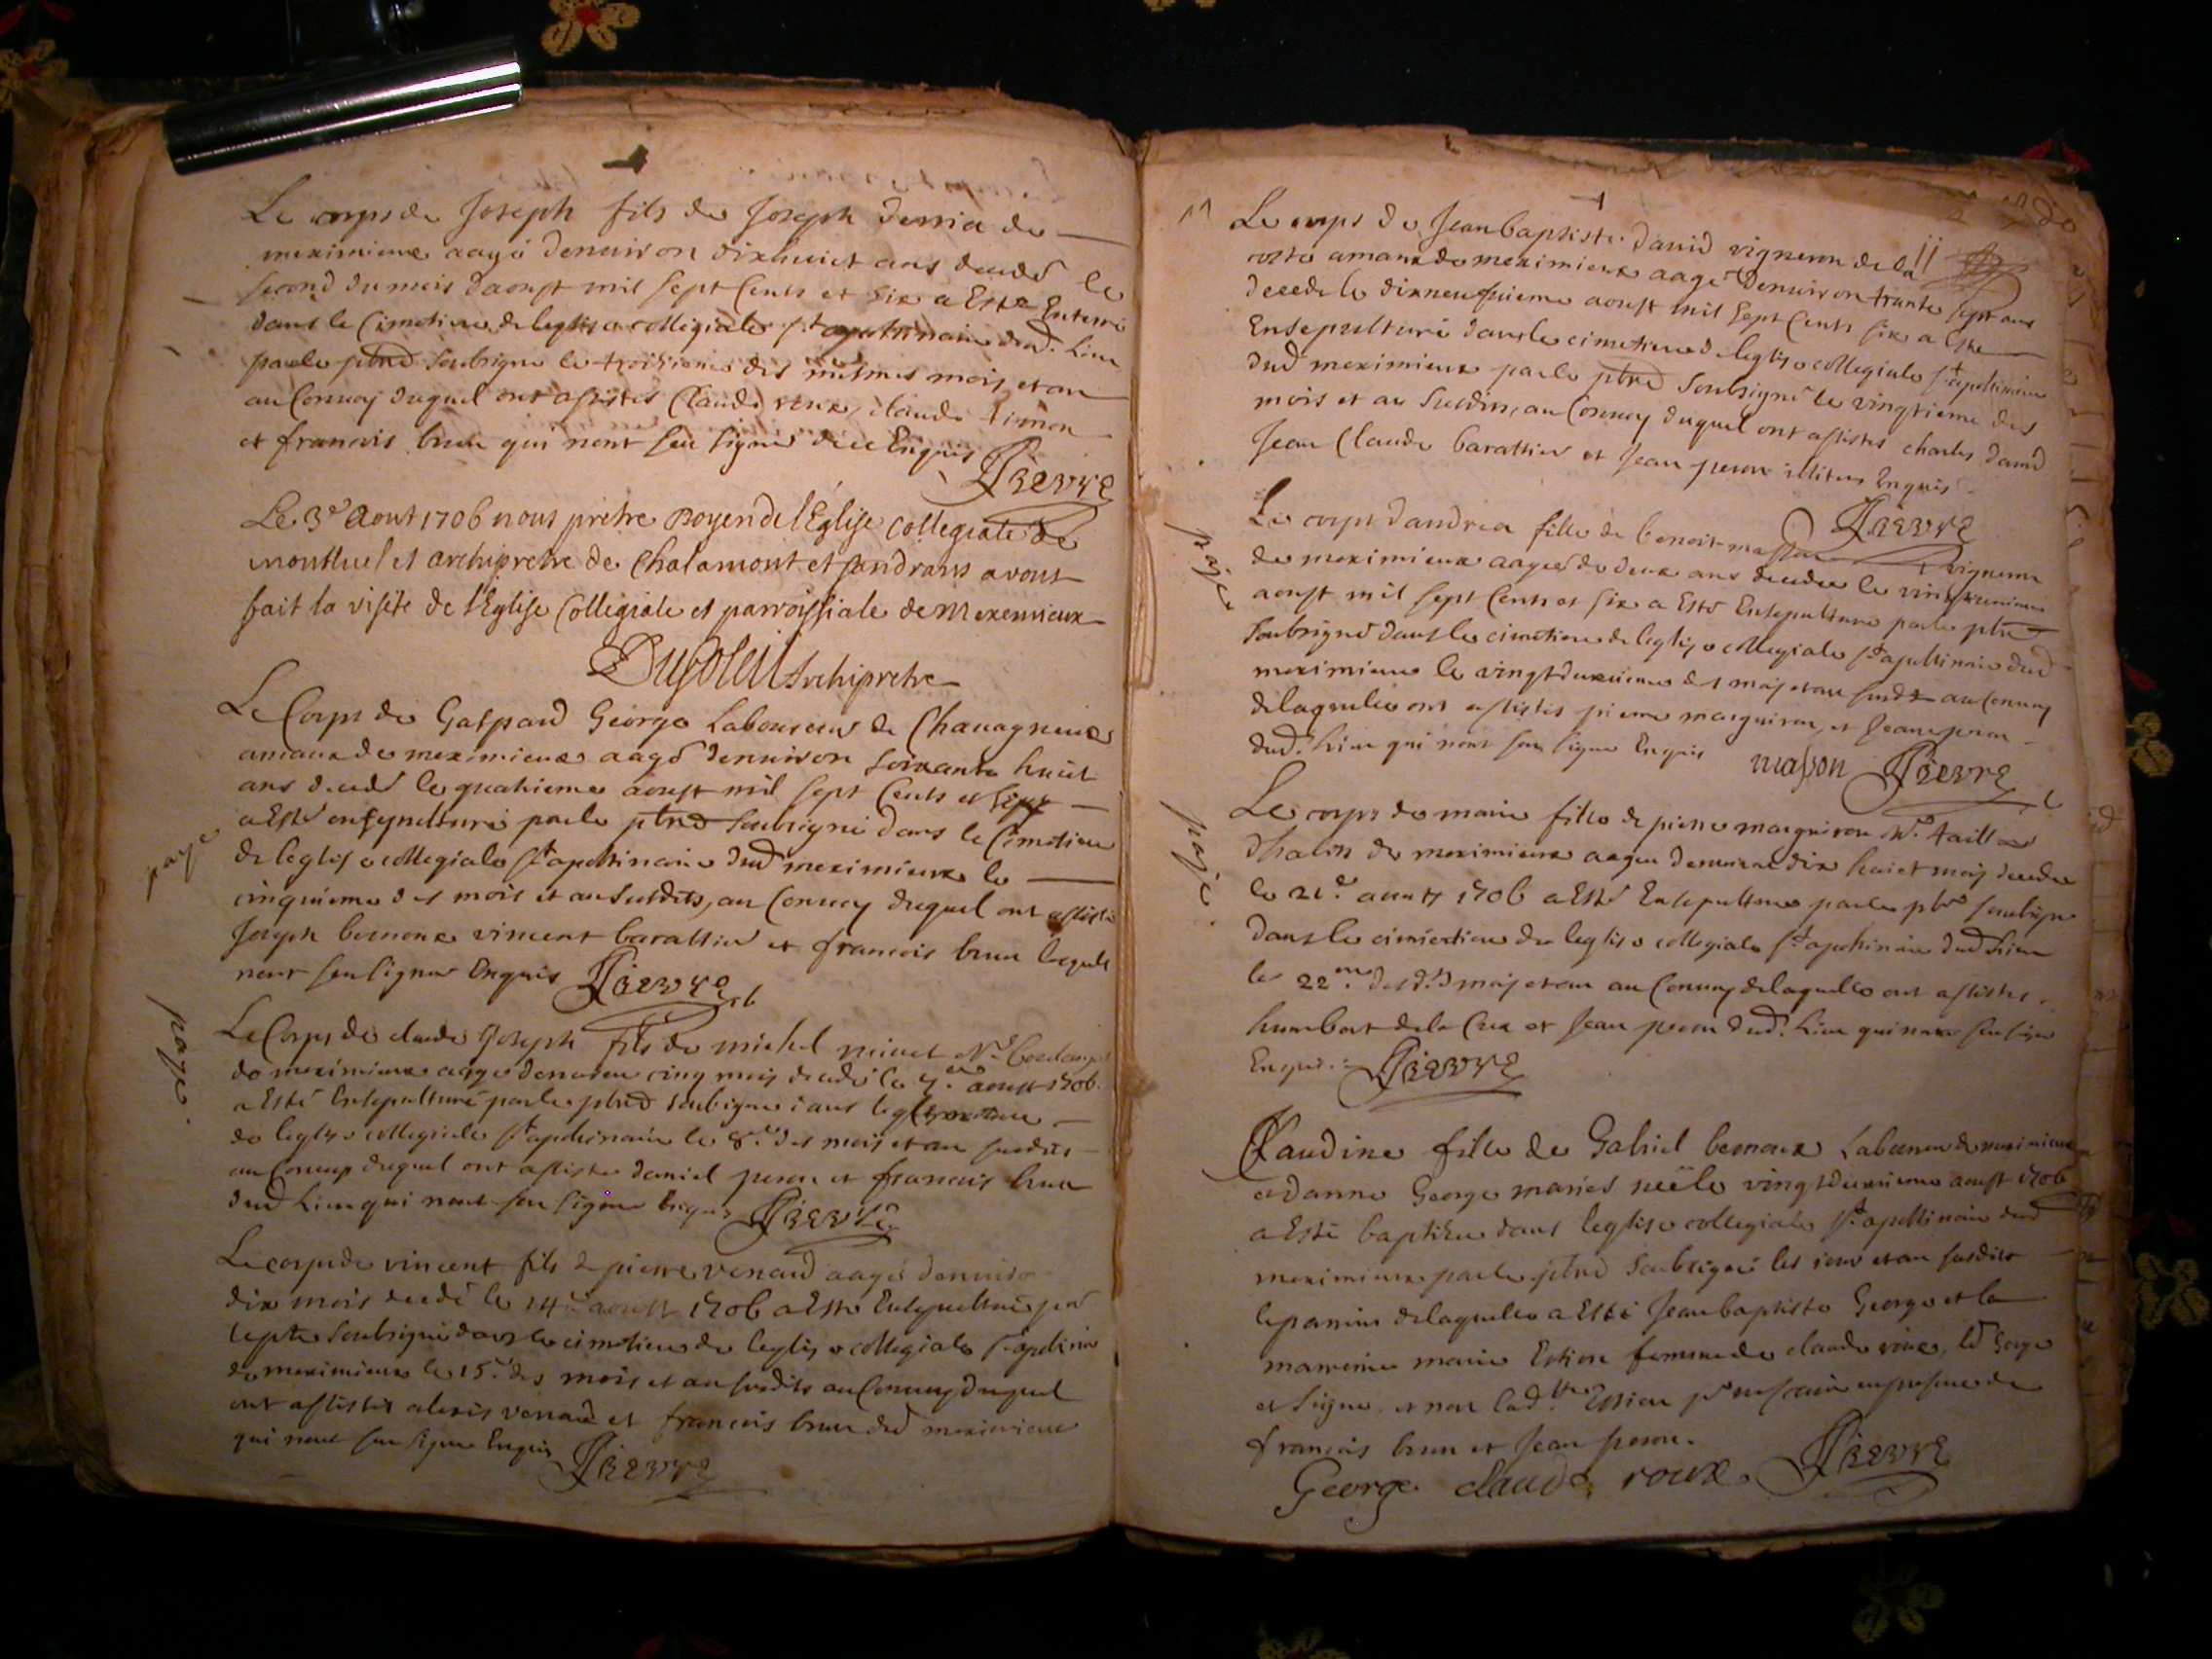 Le corps de Joseph fils de Joseph de
meximieux aagé denuiron dixhuict ans decedé le
second du mois daoust mil sept Cents et six a Esté Enterré
dans le Cimetiere de leglise collegiale st apollinaire dud. Lieu
par le ptre soubsigne le troisieme des mesmes mois et an
au Conuoy duquel ont assistés Claude roux, claude
et francois brun qui nont sceu signer de ce Enquis
Le 3e Aout 1706 nous pretre Doyen de l'Église Collegiale de
montluel et archipretre de Chalamont et sandrans avons
fait la visite de l'Église Collégiale et parroissiale de Meximieux
Archipretre
Le Corps de Gaspard George Laboureur de Chauagnieux
amans de meximieux aagé denuiron soixante huict
ans decedé le quatrieme aoust mil sept Cents et
a Esté ensepulturé par le ptre soubsigné dans le Cimetiere
de leglise collegiale st apollinaire dud meximieux le
cinquieme des mois et an susdits, au Conuoy duquel ont assisté
Joseph bernoux vincent barattier et francois brun lesquels
nont sceu signer Enquis
paye
Le Corps de claude Joseph fils de michel
de meximieux aagé denuiron cinq mois decedé le 7e aoust 1706
a Esté Ensepulturé par le ptre soubsigne dans
de leglise collegiale st apollinaire le 8e des mois et an susdits
au Conuoy duquel ont assisté daniel peron et francois brun
dud Lieu qui nont sceu signer Enquis
paye
Le corps de vincent fils de pierre venard aagé denuiron
dix mois decedé le 14e aoust 1706 a Esté Ensepulturé par
le ptre soubsigné dans le cimetiere de leglise collegiale st apollinaire
de meximieux le 15e des mois et an susdits au Conuoy duquel
ont assistés alexis venard et francois brun dud meximieux
qui nont sceu signer Enquis
11
Le corps de Jean baptiste dauid vigneron de la
coste amans de meximieux aagé denuiron trante sept ans
decedé le dixneufuieme aoust mil sept Cents six a Esté
Ensepulturé dans le cimetiere de leglise collegiale st apollinaire
dud meximieux par le ptre soubsigné le vingtieme des
mois et an susdits, au Conuoy duquel ont assistés charles dauid
Jean Claude barattier et Jean peron illiteres Enquis
paye
Le corps dandrea fille de benoit masson vigneron
de meximieux aagée de deux ans decedee le
aoust mil sept Cents et six a Esté Ensepulturee par le ptre
soubsigné dans le cimetiere de leglise collegiale st apollinaire dud
meximieux le vingtdeuxieme des mois et an susd au Conuoy
delaquelle ont assistés pierre marguiron, et Jean peron
dud. Lieu qui nont sceu signer Enquis masson
paye
Le corps de marie fille de pierre marguiron
de meximieux aagee denuiron dix huict mois decedee
le 21e aoust 1706 a Esté Ensepulturee par le ptre soubsigne
dans le cimetiere de leglise collegiale st apollinaire dud Lieu
le 22me desd. mois et an au Conuoy delaquelle ont assistés
humbert dela Crux et Jean peron dud. Lieu qui nont sceu signer
Enquis
Claudine fille de Gabriel bernoux Laboureur de meximieux
et danne George mariés née le vingtdeuxieme aoust 1706
a Esté baptisée dans leglise collegiale st apollinaire dud
meximieux par le ptre soubsigné les jour et an susdits
le parrain delaquelle a Esté Jean baptiste George et la
marreine marie femme de claude roux, led George
et signe, et non lad. en presence de
francois brun et Jean peron.
George claude roux